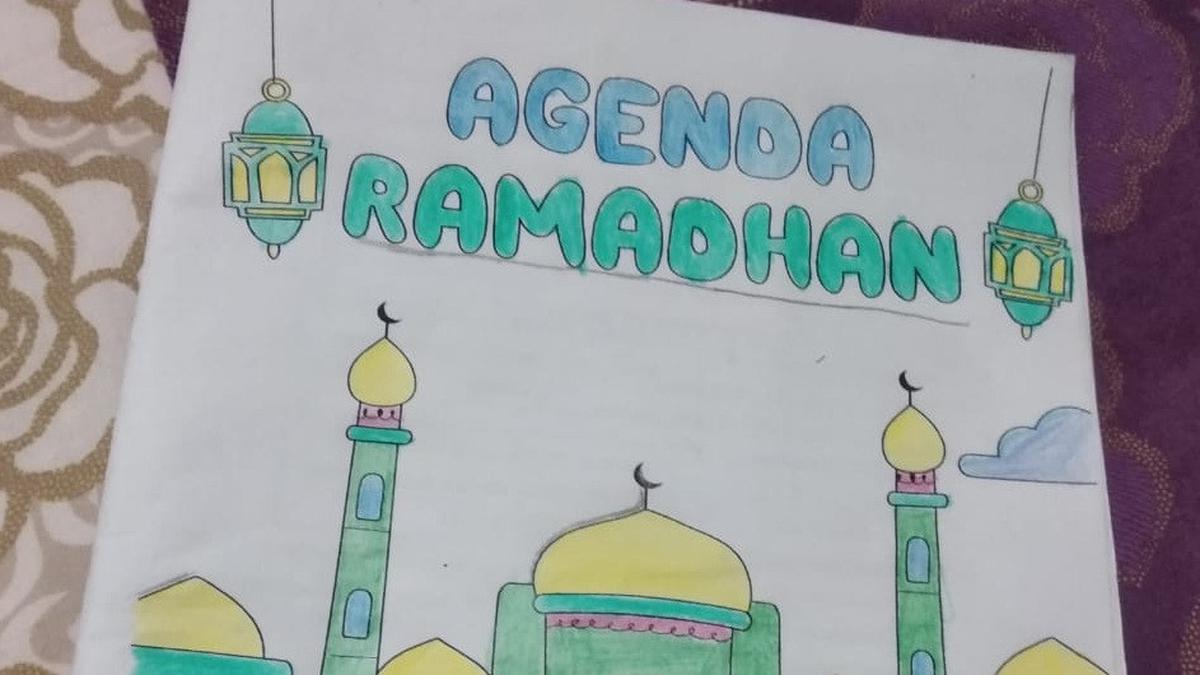 AGENDA
RAMADHAN